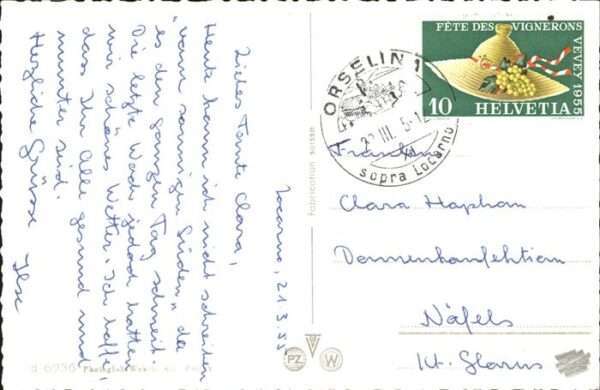 Locarno, 21.3.55
Liebes Tante Clara,
Heute kann ich nicht schreiben
"vom sonnigen Süden" da
es den ganzen Tag schneit.
Die letzte Woche jedoch hatten
wir schönes Wetter. Ich hoffe,
dass Ihr Alle gesund und
munter sind.
Herzliche Grüsse
Ilse
Fabrication suisse
PZ W
6236
FÊTE DES VIGNERONS
VEVEY 1955
10 HELVETIA
ORSELINA
III. 5
sopra Locarno
Clara
Näfels
Kt. Glarus